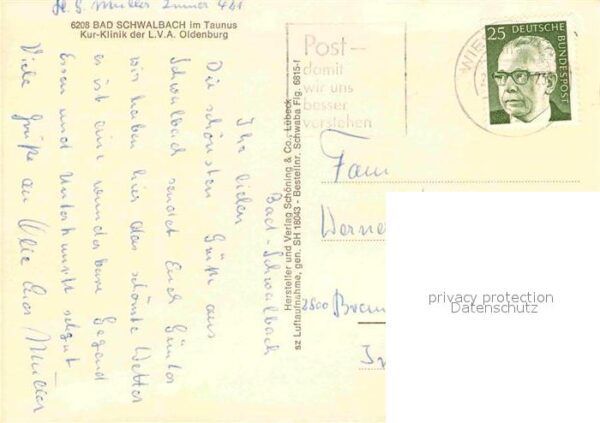 6208 BAD SCHWALBACH im Taunus
Kur-Klinik der L.V.A. Oldenburg
Bad-Schwalbach
Ihr lieben
Die schönsten Grüße aus
Schwalbach sendet Euch Günter
wir haben hier das schönste Wetter
es ist eine wunderbare Gegend
Essen und Unterkunft sehr gut
Viele Grüße an Alle Euer Müller
Hersteller und Verlag Schöning & Co., Lübeck
sz Luftaufnahme, gen. SH 18043 - Bestellnr. Schwaba Flg. 6815-f
Post-
damit
wir uns
besser
verstehen
WIES
25
DEUTSCHE
BUNDESPOST
Fam
Werne
2800 Brem
privacy protection
Datenschutz